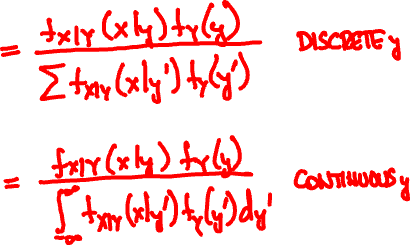 = f_{X|Y}(x|y) f_Y(y) / ∑ f_{X|Y}(x|y') f_Y(y') DISCRETE y
= f_{X|Y}(x|y) f_Y(y) / ∫_{-∞}^{∞} f_{X|Y}(x|y') f_Y(y') dy' CONTINUOUS y